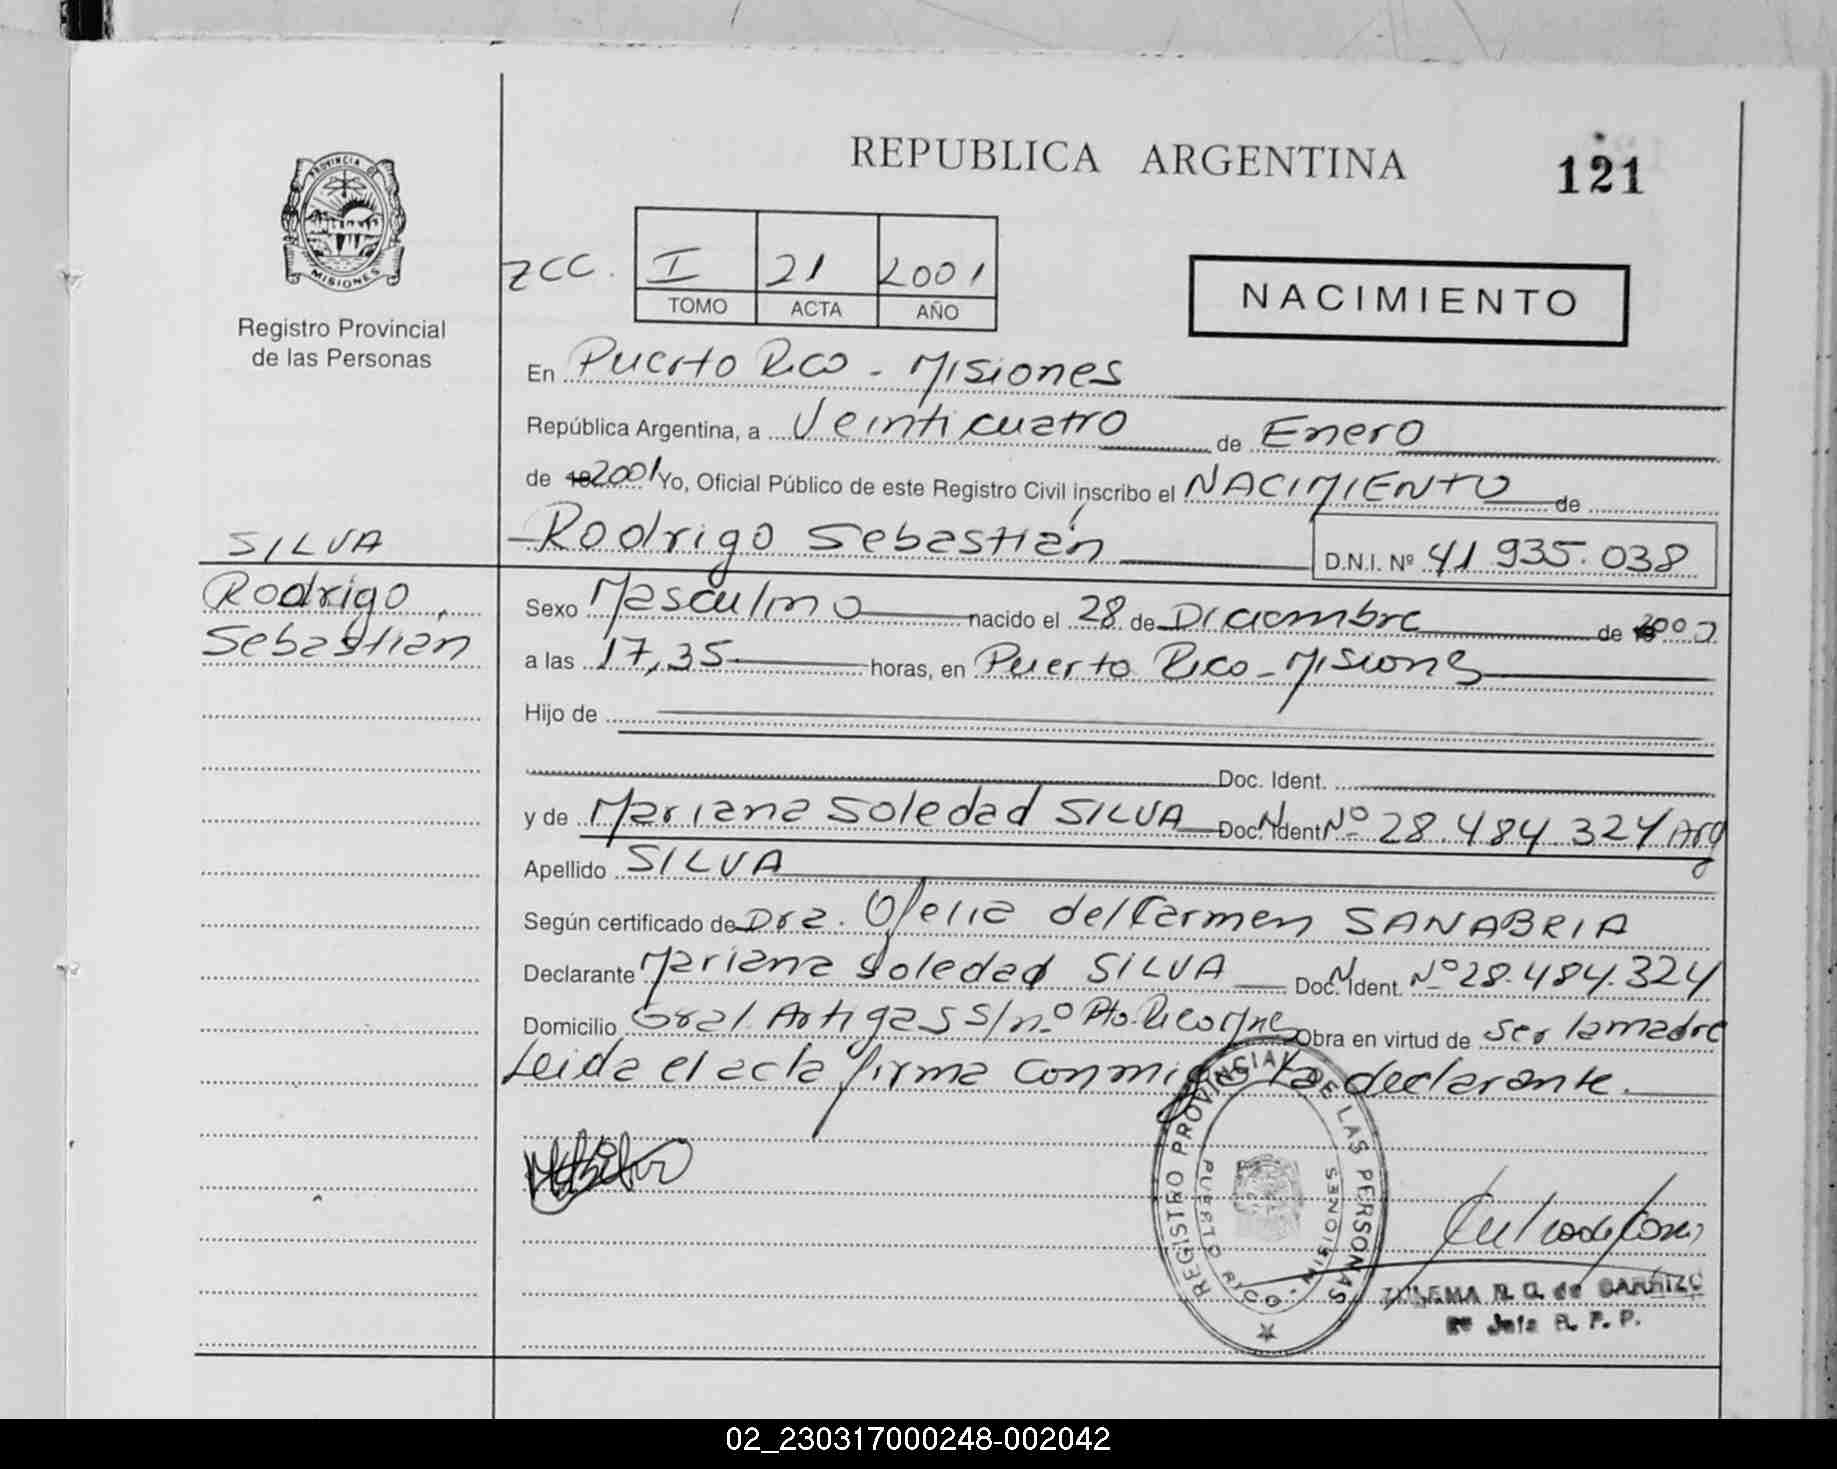 REPUBLICA ARGENTINA
121
PROVINCIA DE
MISIONES
Registro Provincial
de las Personas
ZCC.
I 21 2001
TOMO ACTA AÑO
NACIMIENTO
En Puerto Rico - Misiones
República Argentina, a Veinticuatro de Enero
de 2001 Yo, Oficial Público de este Registro Civil inscribo el NACIMIENTO de
SILVA
Rodrigo Sebastián D.N.I. Nº 41 935.038
Rodrigo
Sebastian
Sexo Masculino nacido el 28 de Diciembre de 2000
a las 17,35 horas, en Puerto Rico - Misiones
Hijo de
Doc. Ident.
y de Mariana Soledad SILVA Doc. N. Ident Nº 28.484.324 Arg
Apellido SILVA
Según certificado de Dra. Ofelia del Carmen SANABRIA
Declarante Mariana Soledad SILVA Doc. N. Ident. Nº 28.484.324
Domicilio Gral. Artigas S/nº Pto. Rico Mnes Obra en virtud de ser la madre
Leida el acta firma conmigo la declarante.
REGISTRO PROVINCIAL DE LAS PERSONAS
PUERTO RICO - MISIONES
de CARRIZO
02_230317000248-002042